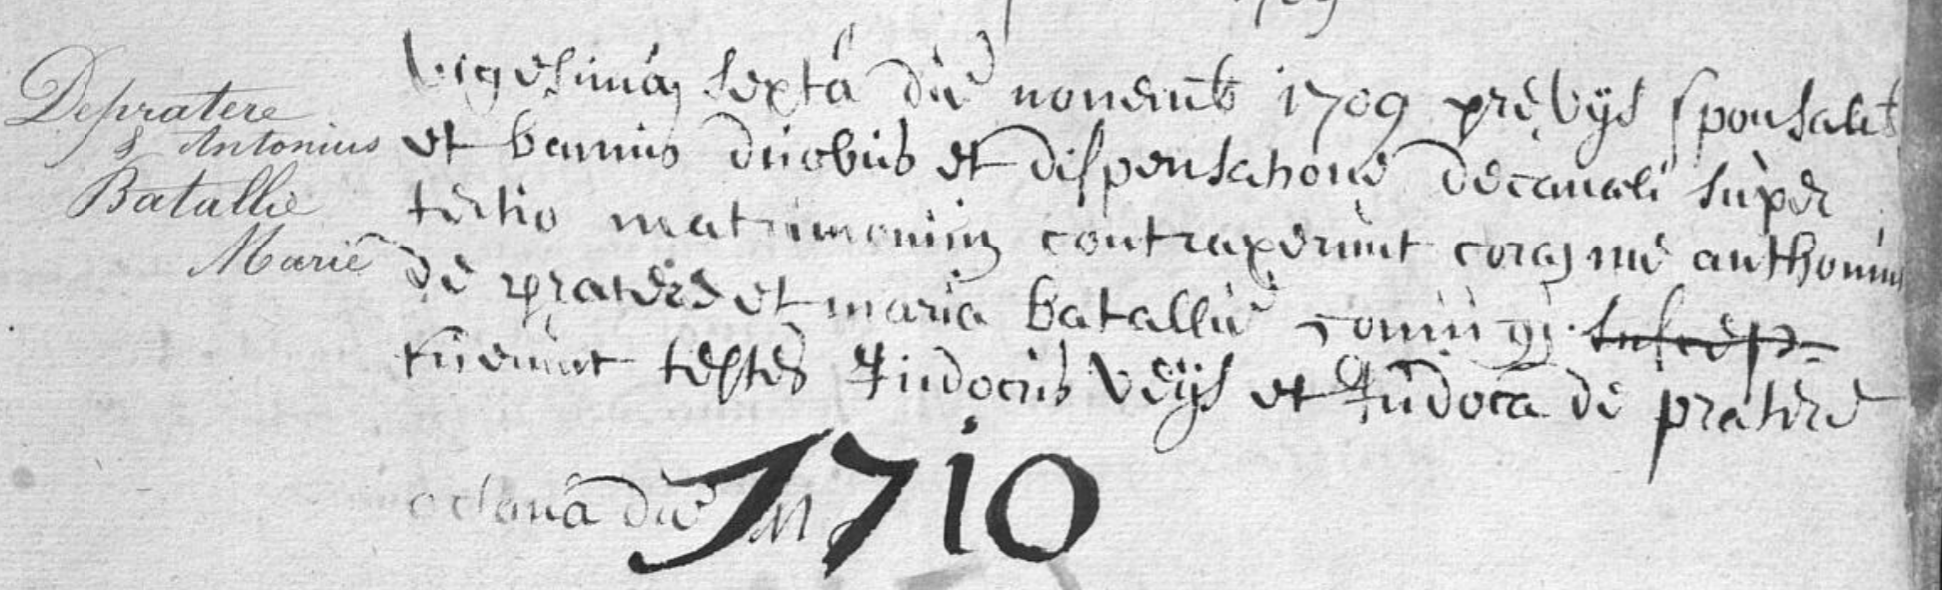 Depratere
& Antonius
Batallie
Marie
vigesima sexta die novemb 1709 prevys sponsalib
et bannis duobus et dispensatione decanali super
tertio matrimonium contraxerunt coram me anthonius
de pratere et maria batallie coniugi
fuerunt testes Judocus veys et Judoca de pratere
octava die M
1710